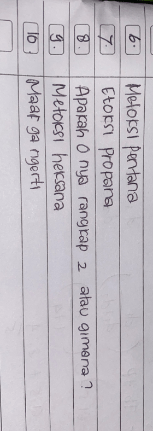 6. Metoksi pentana
7. Etoksi propana
8. Apakah O nya rangkap 2 atau gimana?
9. Metoksi heksana
10. Maaf ga ngerti